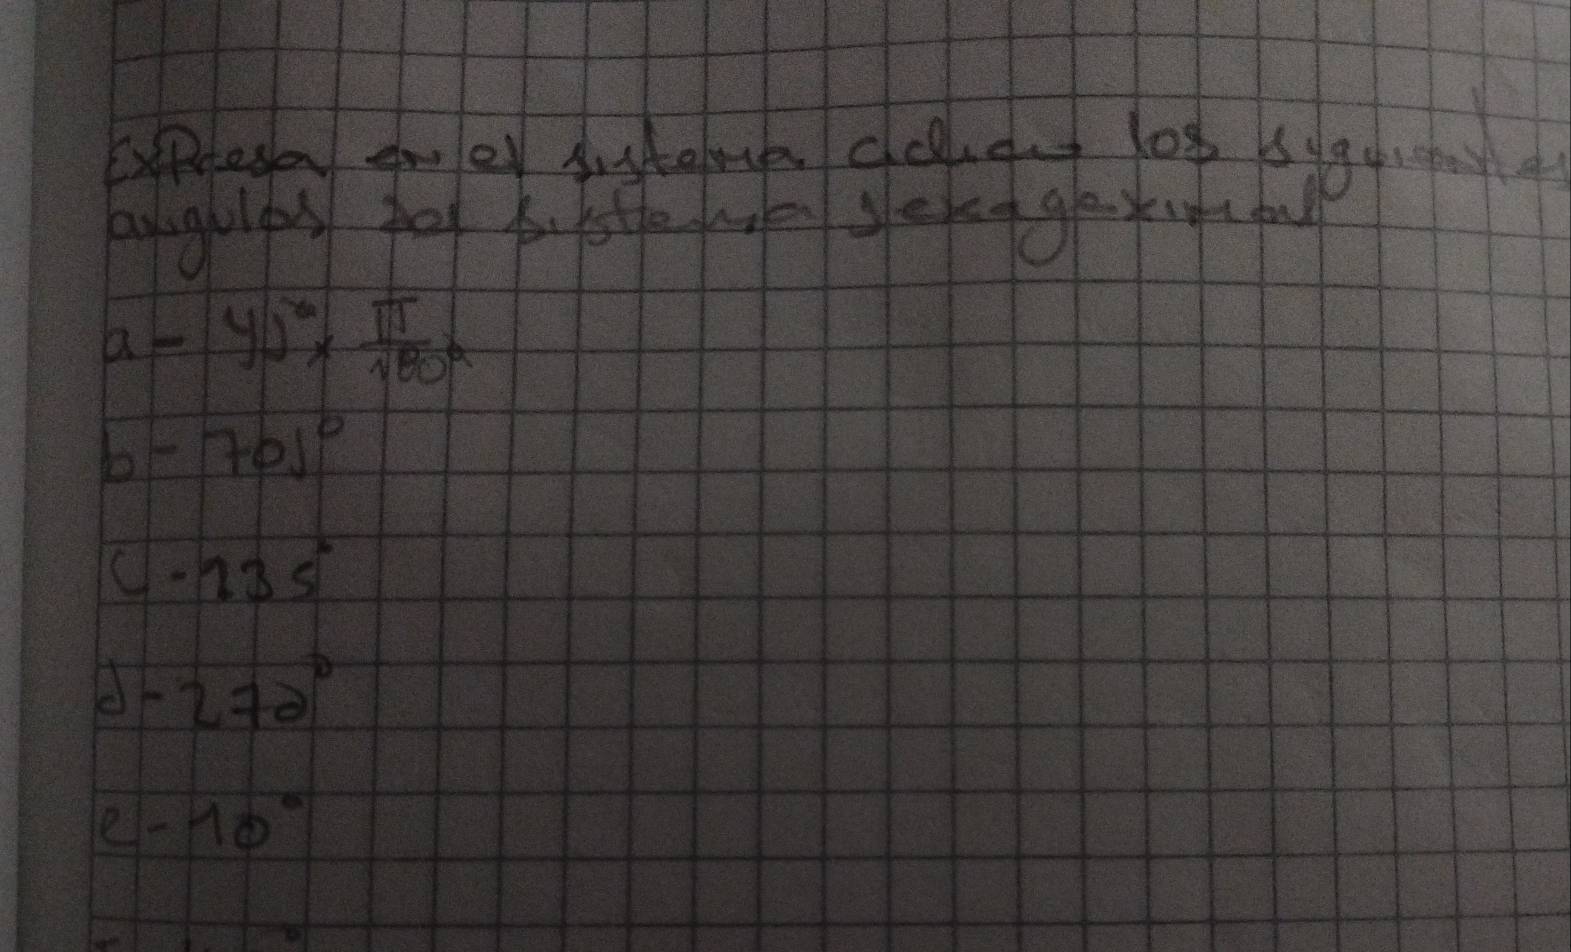 Expresa en el sistema los siguientes
angulos del sistema sexageximal
a - 45° x π/180°
b - 705°
c - 135°
d - 270°
e - 10°